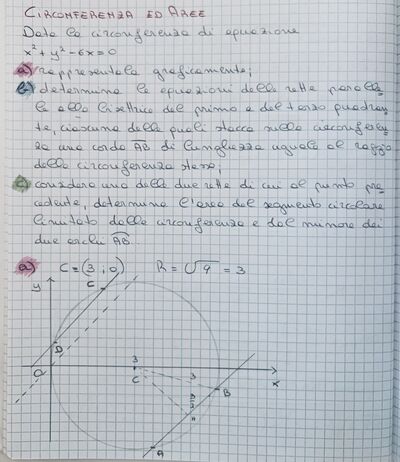 CIRCONFERENZA ED AREE
Data la circonferenza di equazione
x²+y²-6x=0
a) rappresentala graficamente;
b) determina le equazioni delle rette paralle
le alla bisettrice del primo e del terzo quadran
te, ciascuna delle quali stacca sulla circonferen
za una corda AB di lunghezza uguale al raggio
della circonferenza stessa;
c) considera una delle due rette di cui al punto pre
cedente, determina l'area del segmento circolare
limitato dalla circonferenza e dal minore dei
due archi AB.
a) C=(3;0) R=√9=3
y
C
D
O
3
C
3
3/2
B
x
A